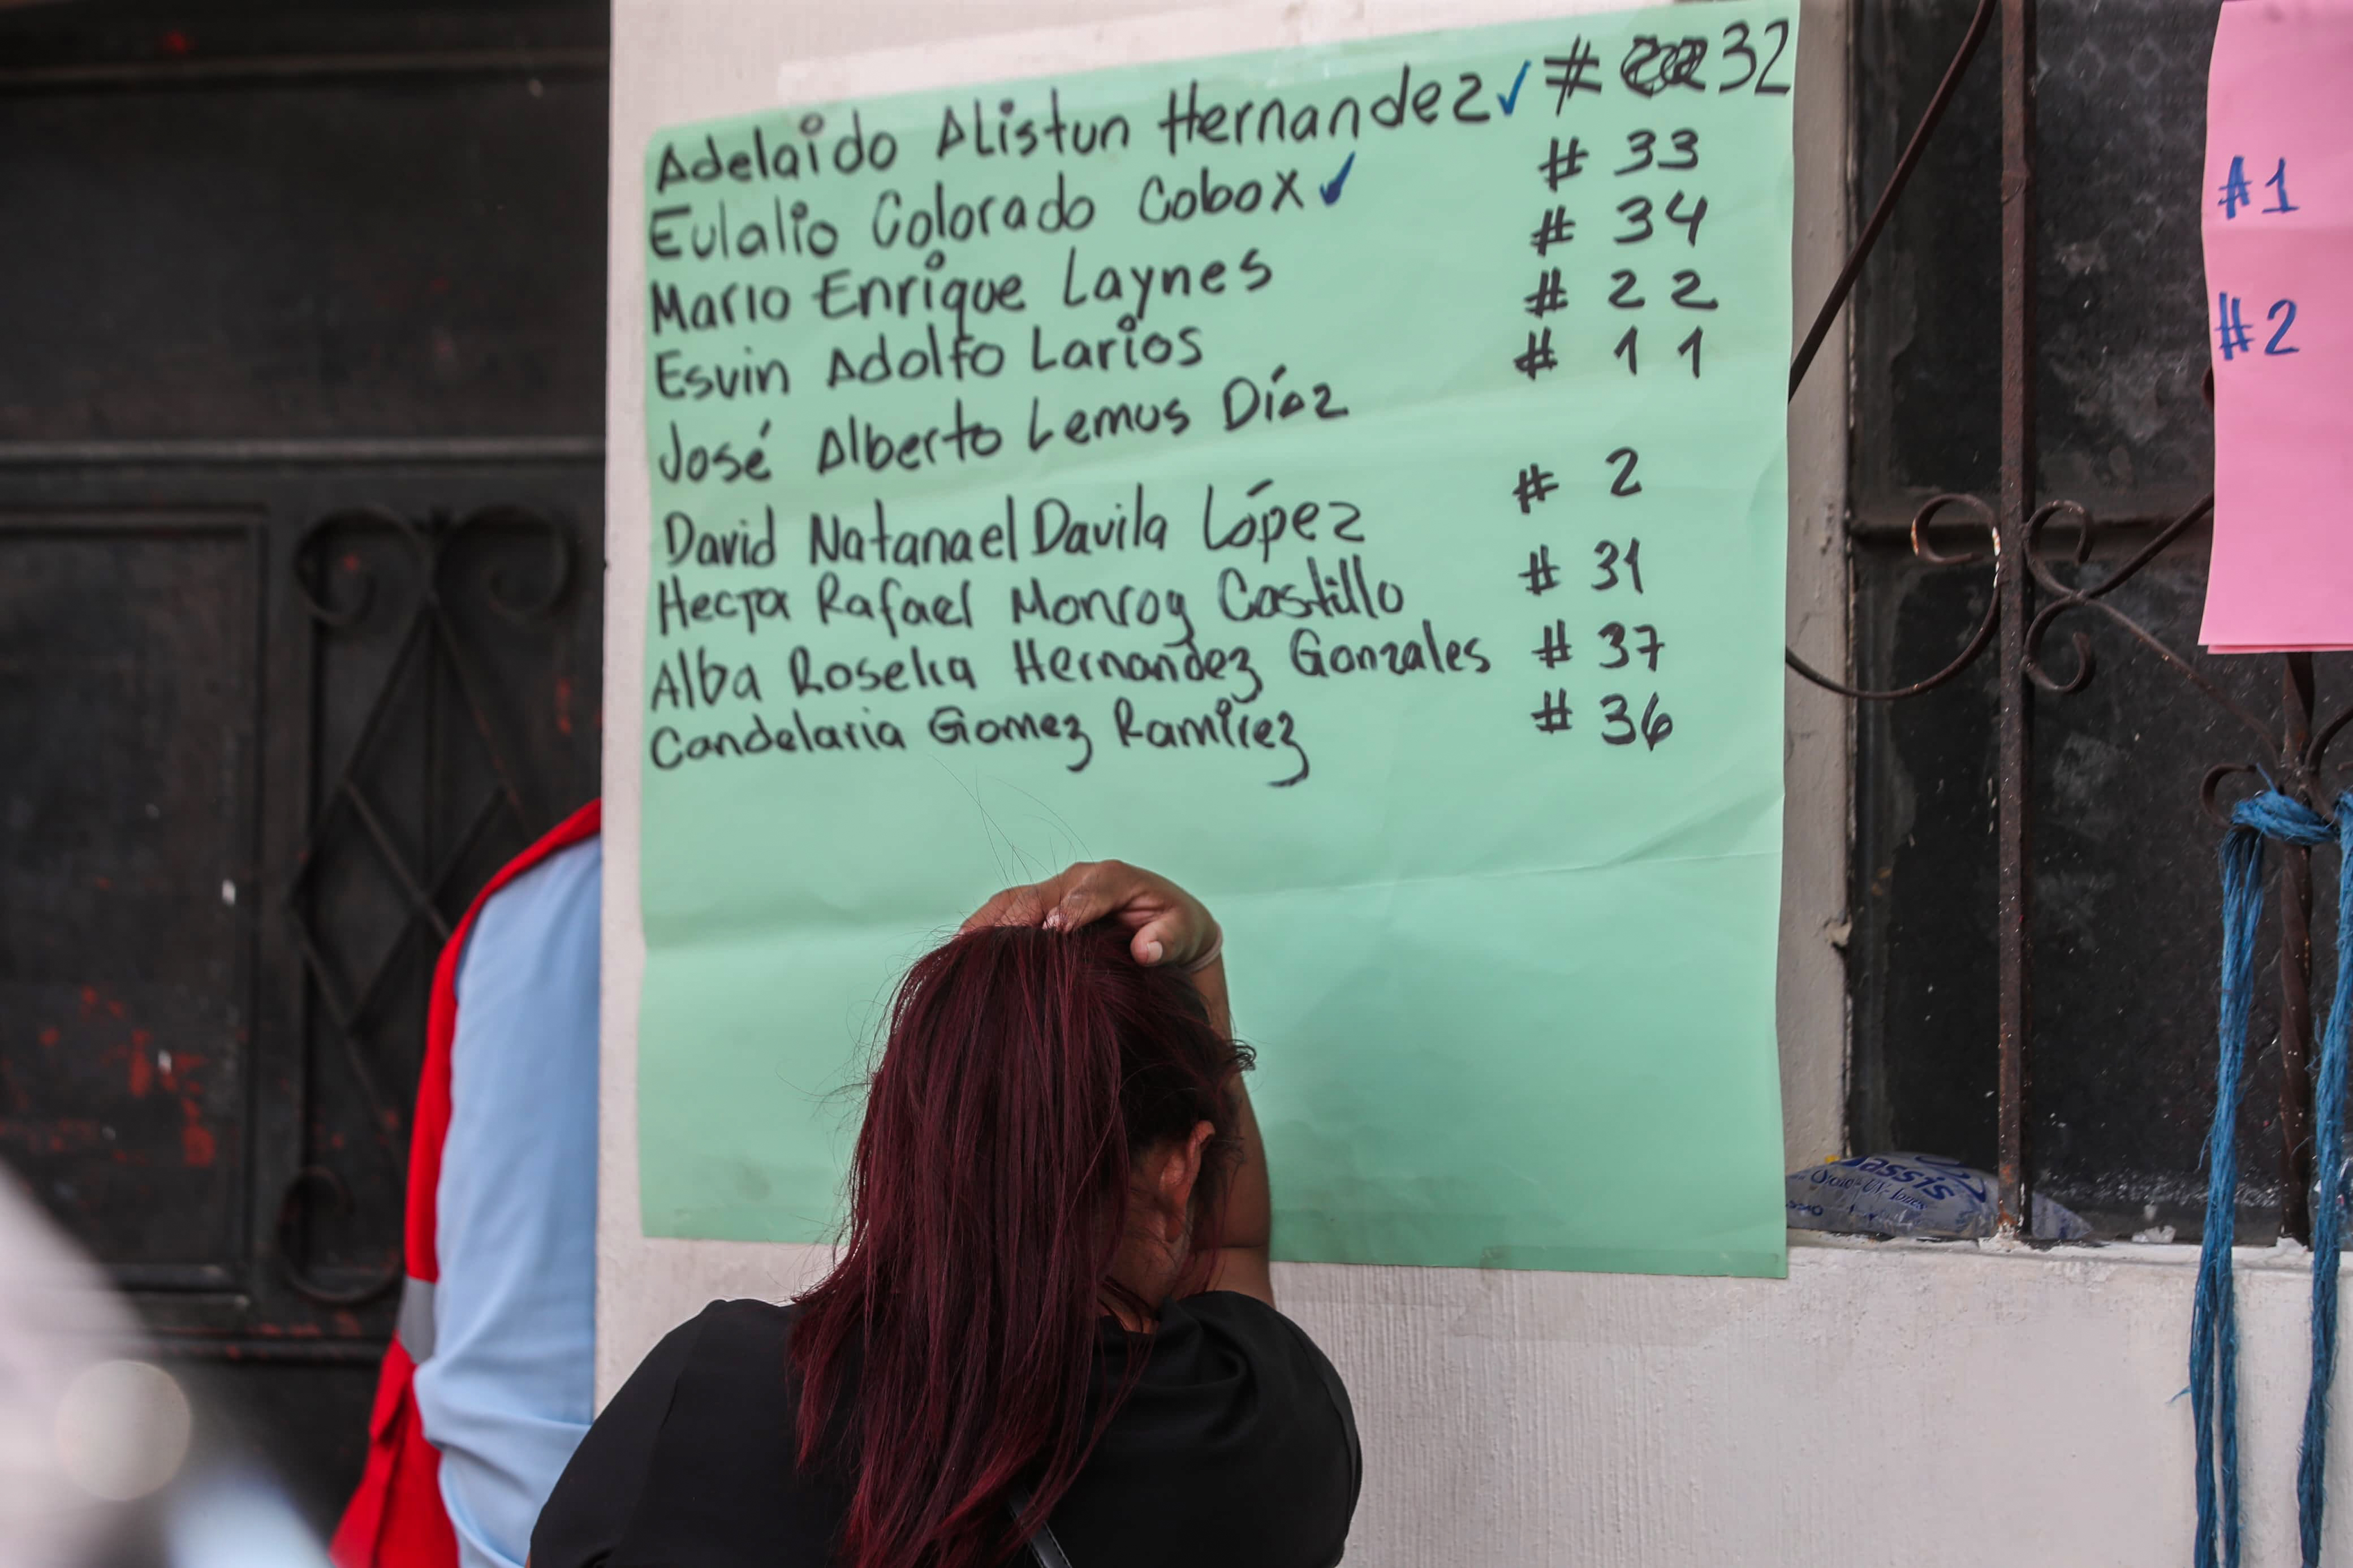 Adelaido Alistun Hernandez ✓ # 32
Eulalio Colorado Cobox ✓ # 33
Mario Enrique Laynes # 34
Esvin Adolfo Larios # 22
José Alberto Lemus Díaz # 11
David Natanael Davila López # 2
Hector Rafael Monroy Castillo # 31
Alba Roselia Hernandez Gonzales # 37
Candelaria Gomez Ramirez # 36
#1
#2